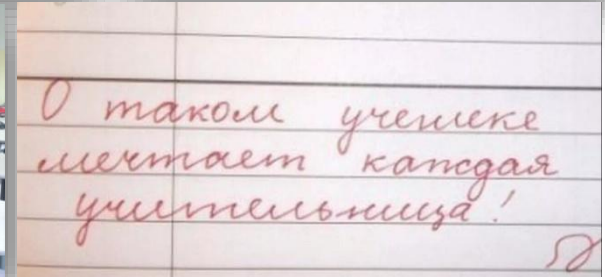 О таком ученике
мечтает каждая
учительница!